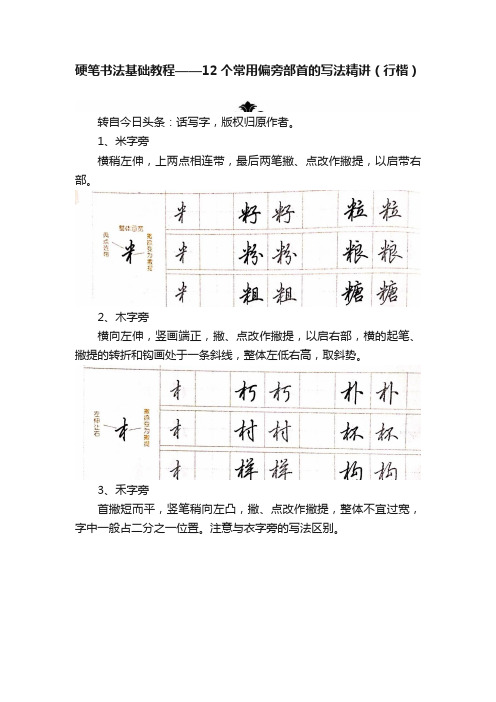 硬笔书法基础教程——12个常用偏旁部首的写法精讲（行楷）
转自今日头条：话写字，版权归原作者。
1、米字旁
横稍左伸，上两点相连带，最后两笔撇、点改作撇提，以启带右
部。
撇点变为撇提
米 米 籽 籽 粒 粒
米 粉 粉 粮 粮
米 粗 粗 糖 糖
2、木字旁
横向左伸，竖画端正，撇、点改作撇提，以启右部，横的起笔、
撇提的转折和钩画处于一条斜线，整体左低右高，取斜势。
左伸让右
撇点变为撇提
木 木 朽 朽 朴 朴
木 村 村 杯 杯
木 样 样 构 构
3、禾字旁
首撇短而平，竖笔稍向左凸，撇、点改作撇提，整体不宜过宽，
字中一般占二分之一位置。注意与衣字旁的写法区别。